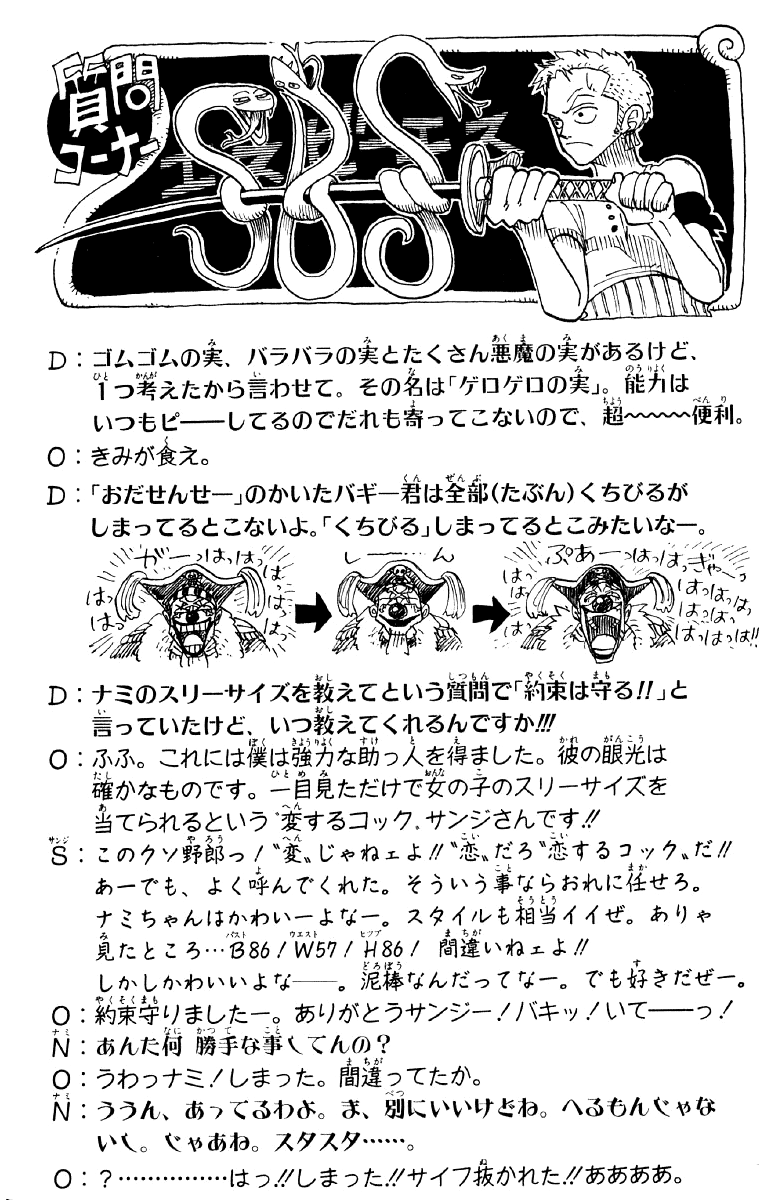 質問
コーナー
エスビーエス
SBS
D:ゴムゴムの実、バラバラの実とたくさん悪魔の実があるけど、
1つ考えたから言わせて。その名は「ゲロゲロの実」。能力は
いつもピ――してるのでだれも寄ってこないので、超〜〜〜〜便利。
O:きみが食え。
D:「おだせんせー」のかいたバギー君は全部(たぶん)くちびるが
しまってるとこないよ。「くちびる」しまってるとこみたいなー。
がーっはっはっは はっ はっ はっ はっ
しーーーん
ぷあーっはっはっぎゃーっはっはっはっはっはっはっはっ!!
D:ナミのスリーサイズを教えてという質問で「約束は守る!!」と
言っていたけど、いつ教えてくれるんですか!!!
O:ふふ。これには僕は強力な助っ人を得ました。彼の眼光は
確かなものです。一目見ただけで女の子のスリーサイズを
当てられるという〝変するコック〟サンジさんです!!
S:このクソ野郎っ!〝変〟じゃねェよ!!〝恋〟だろ〝恋するコック〟だ!!
あーでも、よく呼んでくれた。そういう事ならおれに任せろ。
ナミちゃんはかわいーよなー。スタイルも相当イイぜ。ありゃ
見たところ…B86!W57!H86! 間違いねェよ!!
しかしかわいいよな――。泥棒なんだってなー。でも好きだぜー。
O:約束守りましたー。ありがとうサンジー!バキッ!いて――っ!
N:あんた何 勝手な事してんの?
O:うわっナミ!しまった。間違ってたか。
N:ううん、あってるわよ。ま、別にいいけどね。へるもんじゃな
いし。じゃあね。スタスタ……。
O:?……………はっ!!しまった!!サイフ抜かれた!!ああああ。